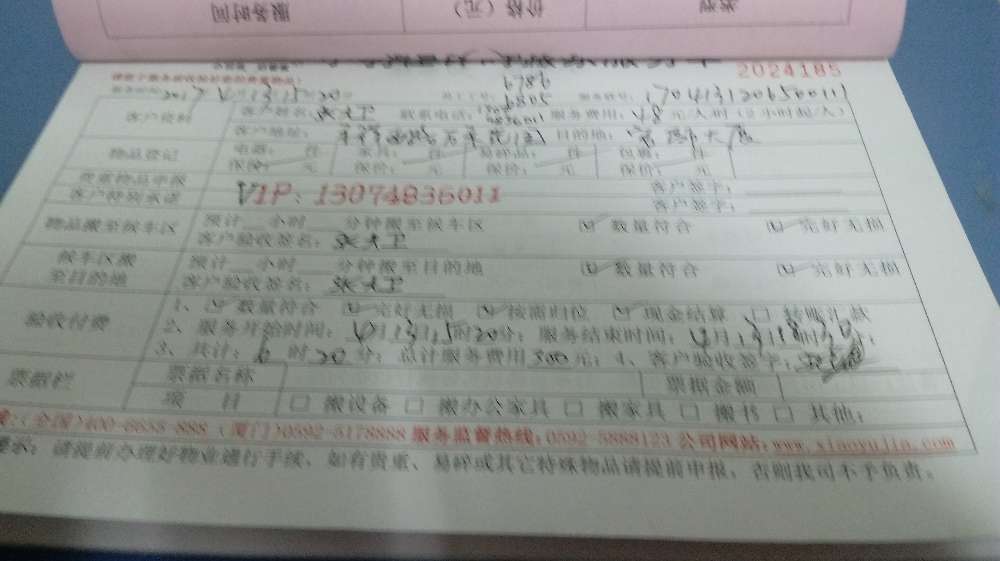 服务时间 价格（元） 类型
2024185
6786
2017 4 13 15 20 6805 1704131206500111
客户资料 客户姓名：张大卫 联系电话： 服务费用：48元/人时（2小时起/人）
客户地址： 目的地：
物品登记 电器： 件 家具： 件 易碎品： 件 包裹： 件
保价： 元 保价： 元 保价： 元 保价： 元
贵重物品申报 客户签字：
客户特别承诺 VIP：13074836011 客户签字：
物品搬至候车区 预计 小时 分钟搬至候车区 ☑ 数量符合 ☑ 完好无损
客户验收签名：张大卫
候车区搬至目的地 预计 小时 分钟搬至目的地 ☑ 数量符合 ☑ 完好无损
客户验收签名：张大卫
验收付费 1、☑ 数量符合 ☑ 完好无损 ☑ 按需归位 ☑ 现金结算 □ 转账汇款
2、服务开始时间：4月13日15时20分；服务结束时间：4月13日
3、共计：6时20分；总计服务费用300元；4、客户验收签字：
票据栏 票据名称 票据金额
项 目 □ 搬设备 □ 搬办公家具 □ 搬家具 □ 搬书 □ 其他：
（全国）400-6655-888（厦门）0592-5178888 服务监督热线：0592-5888123 公司网站：www.xiaoyujin.com
提示：请提前办理好物业通行手续，如有贵重、易碎或其它特殊物品请提前申报，否则我司不予负责。